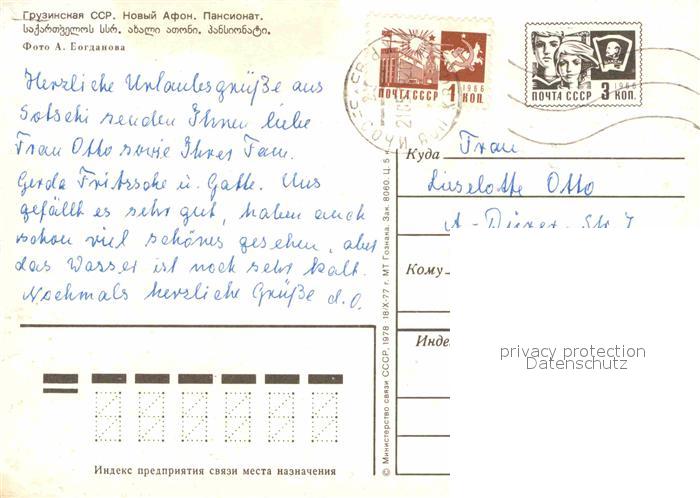 Грузинская ССР. Новый Афон. Пансионат.
საქართველოს სსრ. ახალი ათონი. პანსიონატი.
Фото А. Богданова
Herzliche Urlaubsgrüße aus
Sotschi senden Ihnen liebe
Frau Otto sowie Ihrer Fam.
Gerda Fritzsche u. Gatte. Uns
gefällt es sehr gut, haben auch
schon viel schönes gesehen, aber
das Wasser ist noch sehr kalt.
Nochmals herzliche Grüße d. O.
1966
ПОЧТА СССР 1 КОП.
1966
ПОЧТА СССР 3 КОП.
Куда
Frau
Lieselotte Otto
A.-Dürer-Str. 7
Кому
Инде
privacy protection
Datenschutz
© Министерство связи СССР, 1978 18/X-77 г. МТ Гознака. Зак. 8060. Ц. 5 к
Индекс предприятия связи места назначения